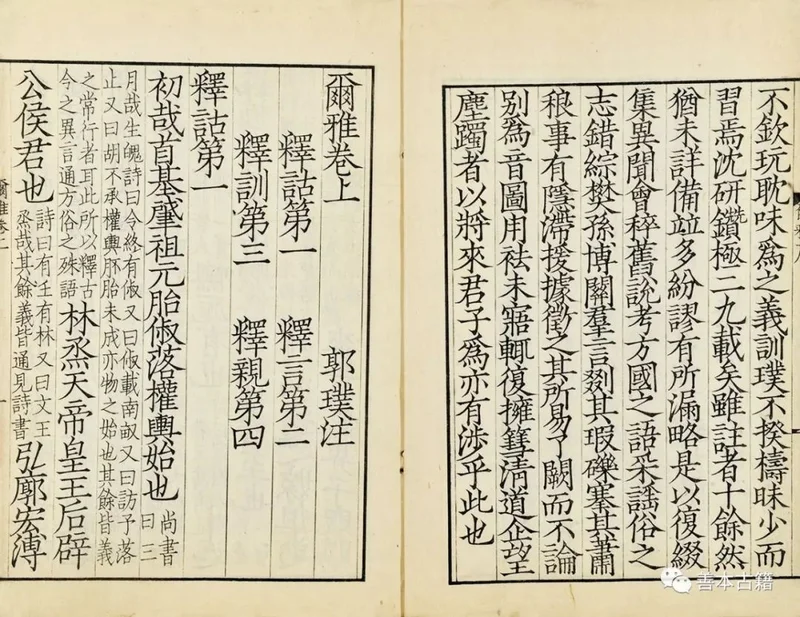 不欽玩耽味爲之義訓璞不揆檮昧少而
習焉沈研鑽極二九載矣雖註者十餘然
猶未詳備竝多紛謬有所漏略是以復綴
集異聞會稡舊說考方國之語采謠俗之
志錯綜樊孫博關羣言剟其瑕礫搴其蕭
稂事有隱滯援據徵之其所易了闕而不論
別爲音圖用祛未寤輒復擁篲清道企望
塵躅者以將來君子爲亦有涉乎此也
爾雅卷上 郭璞注
釋詁第一 釋言第二
釋訓第三 釋親第四
釋詁第一
初哉首基肇祖元胎俶落權輿始也 尚書曰三
月哉生魄詩曰令終有俶又曰俶載南畝又曰訪予落
止又曰胡不承權輿胚胎未成亦物之始也其餘皆義
之常行者耳此所以釋古
今之異言通方俗之殊語
林烝天帝皇王后辟
公侯君也 詩曰有壬有林又曰文王
烝哉其餘義皆通見詩書
弘廓宏溥
爾雅卷上
善本古籍